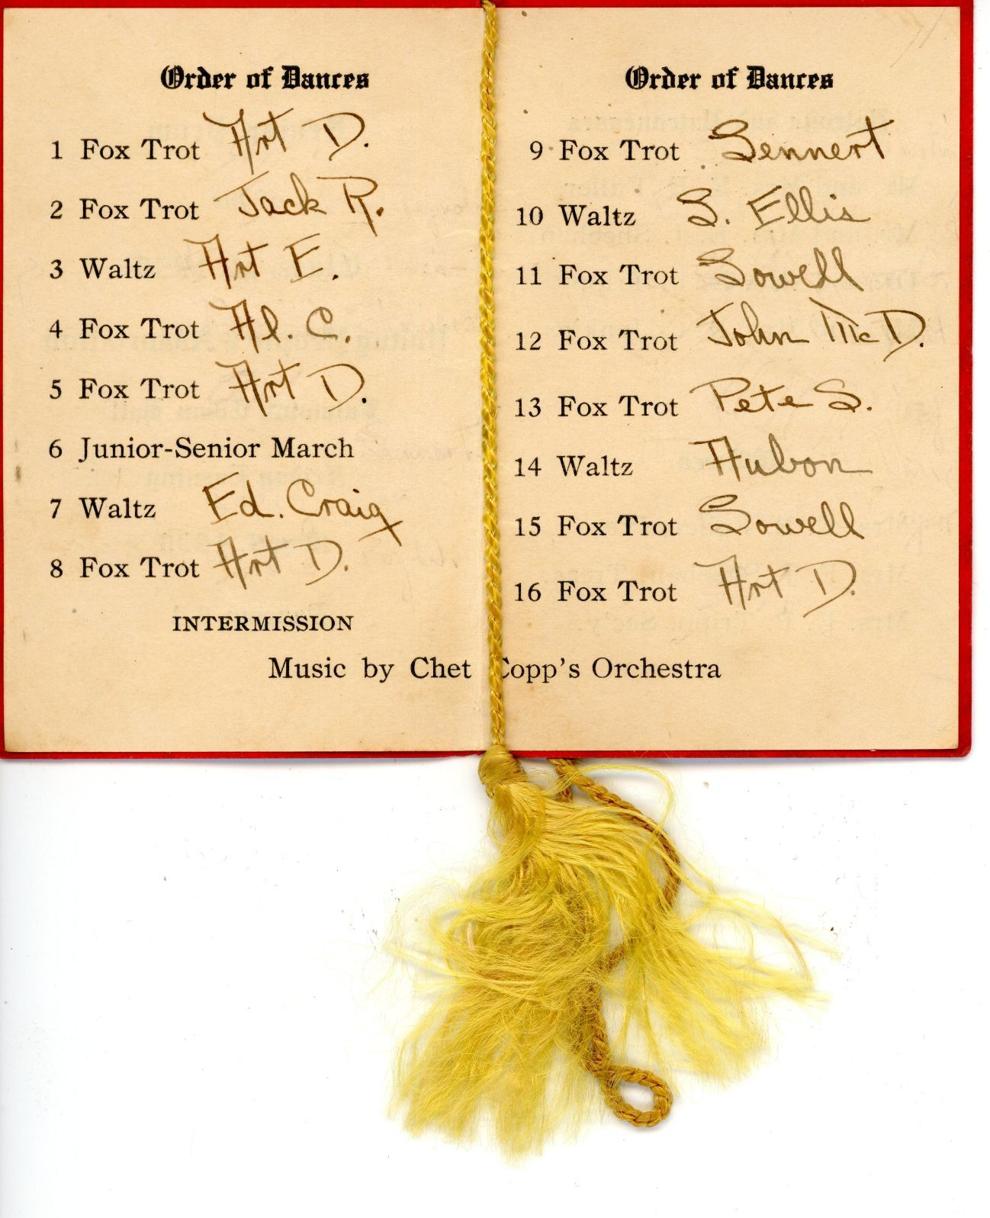 Order of Dances
1 Fox Trot Art D.
2 Fox Trot Jack R.
3 Waltz Art E.
4 Fox Trot Al. C.
5 Fox Trot Art D.
6 Junior-Senior March
7 Waltz Ed. Craig
8 Fox Trot Art D.
INTERMISSION
Order of Dances
9 Fox Trot Sennert
10 Waltz S. Ellis
11 Fox Trot Sowell
12 Fox Trot John McD.
13 Fox Trot Pete S.
14 Waltz Aubon
15 Fox Trot Sowell
16 Fox Trot Art D.
Music by Chet Copp's Orchestra